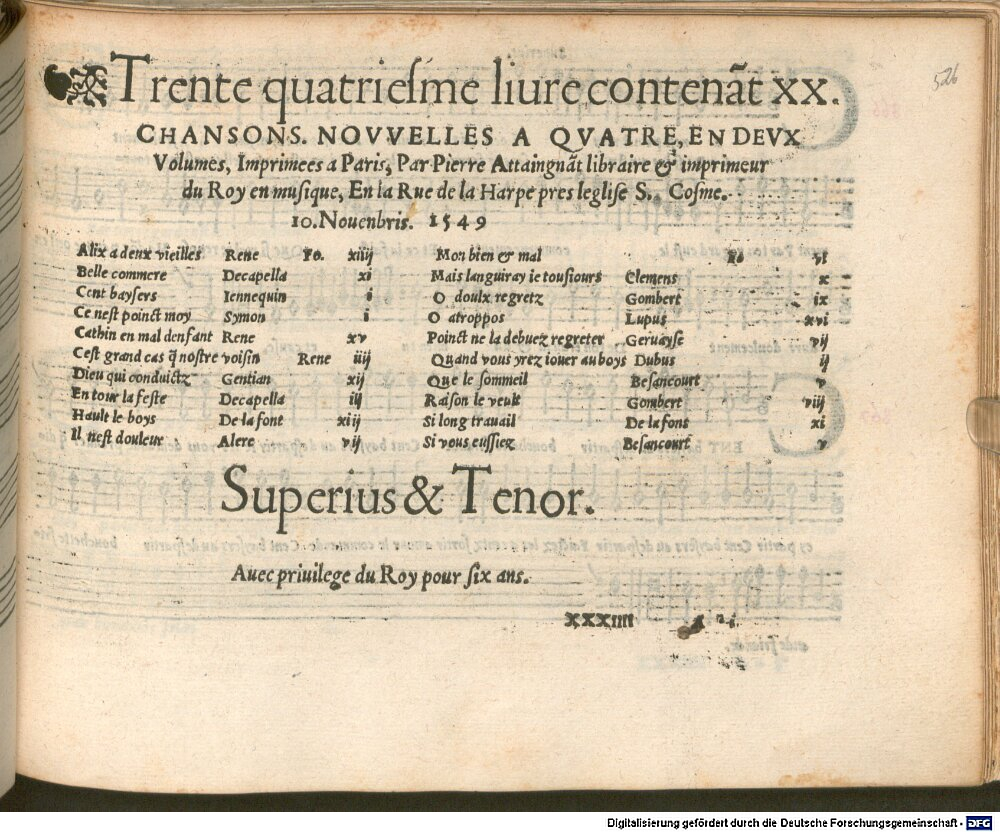 Trente quatriesme liure contenãt xx.
526
CHANSONS. NOVVELLES A QVATRE, EN DEVX
Volumes, Imprimees a Paris, Par Pierre Attaingnãt libraire & imprimeur
du Roy en musique, En la Rue de la Harpe pres leglise S. Cosme.
10. Nouenbris. 1549
Alix a deux vieilles Rene Fo. xiiij
Belle commere Decapella xi
Cent baysers Iennequin i
Ce nest poinct moy Symon i
Cathin en mal denfant Rene xv
Cest grand cas q̃ nostre voisin Rene iiij
Dieu qui conduictz Gentian xij
En tour la feste Decapella iij
Hault le boys De la font xiij
Il nest douleur Alere vij
Mon bien & mal Fo vi
Mais languiray ie tousiours Clemens x
O doulx regretz Gombert ix
O atroppos Lupus xvi
Poinct ne la debuez regreter Geruayse vij
Quand vous yrez iouer au boys Dubus ij
Que le sommeil Besancourt v
Raison le veult Gombert viij
Si long trauail De la font xi
Si vous eussiez Besancourt v
Superius & Tenor.
Auec priuilege du Roy pour six ans.
xxxiiii
Digitalisierung gefördert durch die Deutsche Forschungsgemeinschaft - DFG